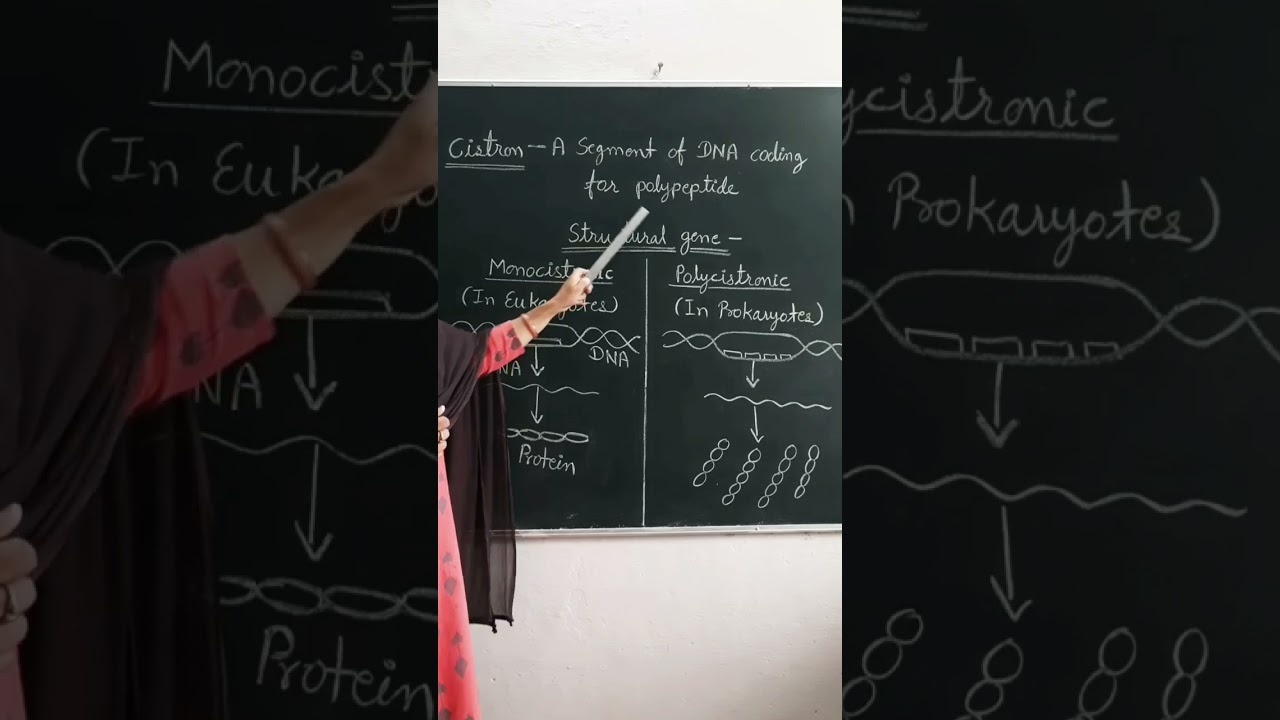 Cistron — A Segment of DNA coding
for polypeptide
Structural gene —
Monocistronic
(In Eukaryotes)
DNA
Protein
Polycistronic
(In Prokaryotes)